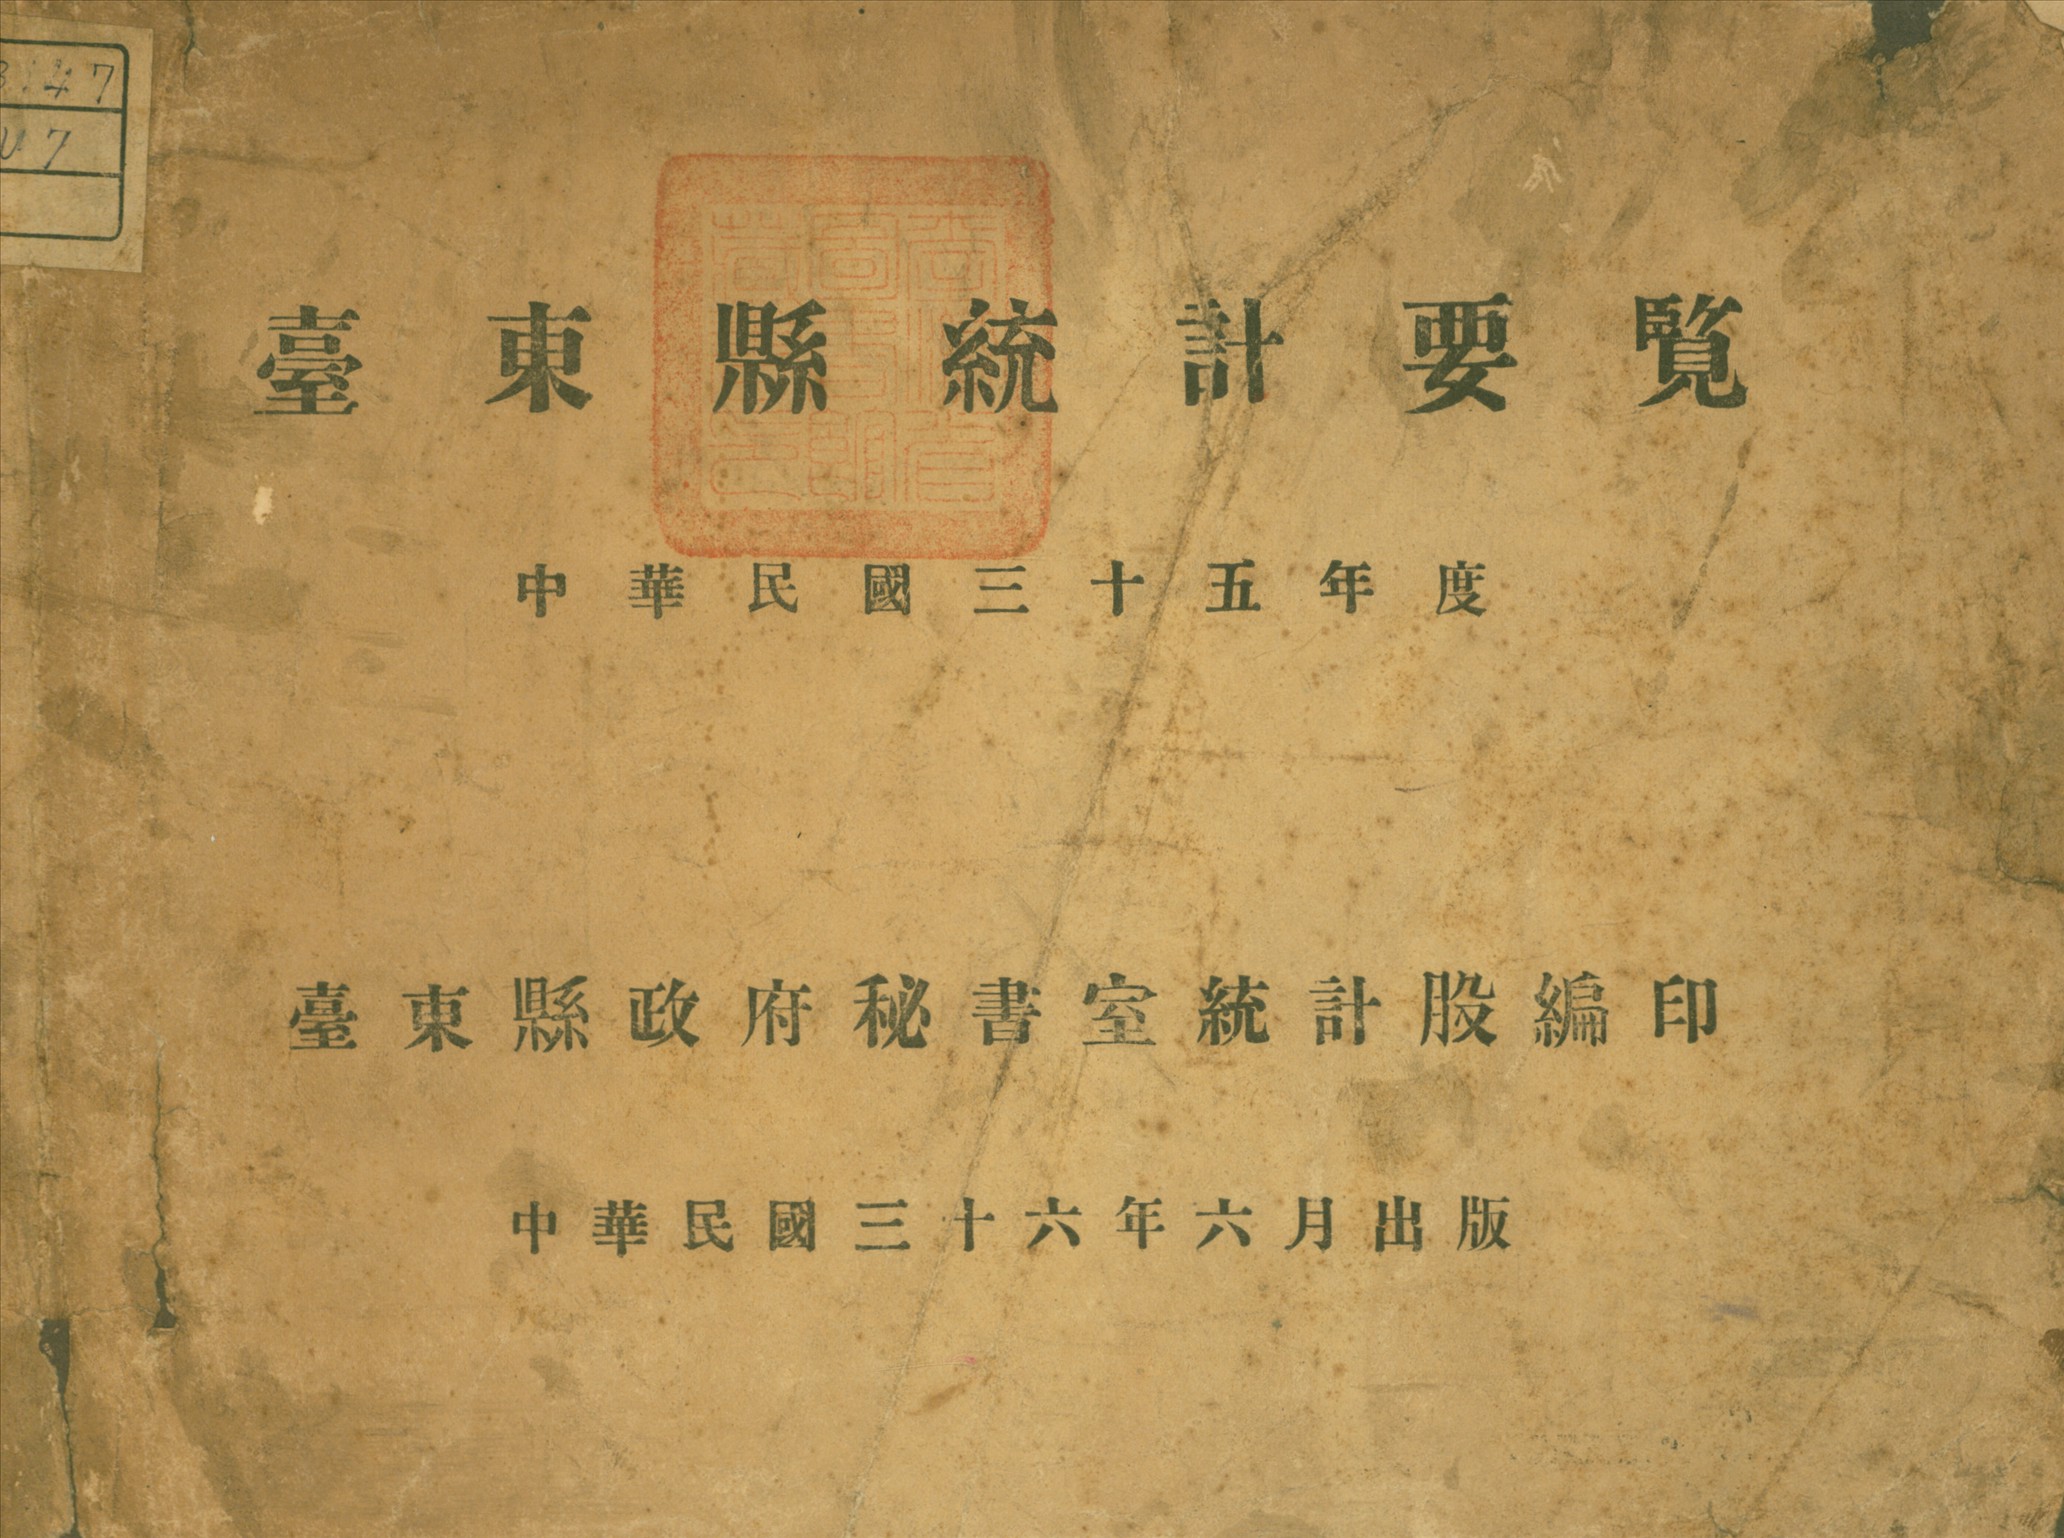 臺東縣統計要覽
中華民國三十五年度
臺東縣政府秘書室統計股編印
中華民國三十六年六月出版
47
U7